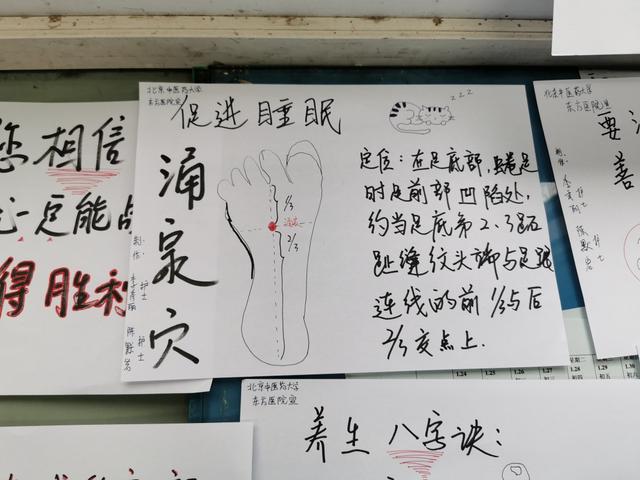 北京中医药大学
东方医院宣
促进睡眠
zzz
涌泉穴
1/3
涌泉
2/3
定位：在足底部，蜷足
时足前部凹陷处，
约当足底第2、3跖
趾缝纹头端与足跟
连线的前1/3与后
2/3交点上.
制作：
护士
护士
您相信
一定能战
得胜利
北京中医药大学
东方医院宣
要
善
护士
护士
北京中医药大学
东方医院宣
养生八字诀：
星期二
1.24
1.25
1.30